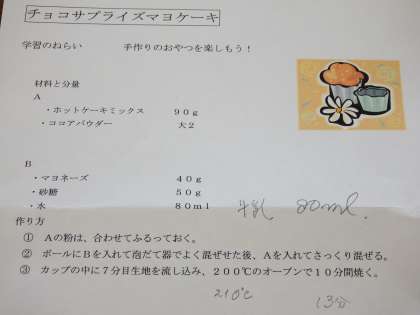 チョコサプライズマヨケーキ
学習のねらい 手作りのおやつを楽しもう!
材料と分量
A
・ホットケーキミックス 90g
・ココアパウダー 大2
B
・マヨネーズ 40g
・砂糖 50g
・水 80ml 牛乳 80ml.
作り方
① Aの粉は、合わせてふるっておく。
② ボールにBを入れて泡だて器でよく混ぜせた後、Aを入れてさっくり混ぜる。
③ カップの中に7分目生地を流し込み、200℃のオーブンで10分間焼く。
210℃ 13分